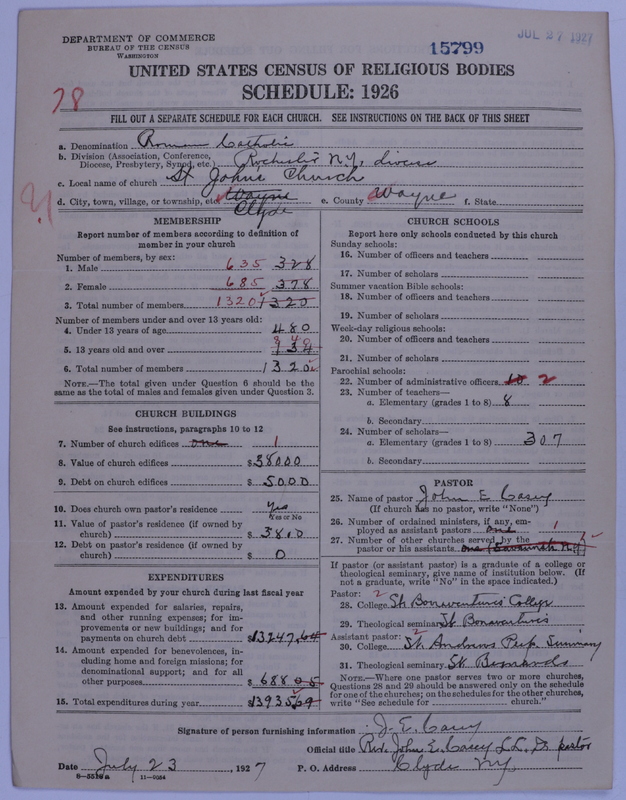 DEPARTMENT OF COMMERCE
BUREAU OF THE CENSUS
WASHINGTON
15799
JUL 27 1927
UNITED STATES CENSUS OF RELIGIOUS BODIES
SCHEDULE: 1926
78
FILL OUT A SEPARATE SCHEDULE FOR EACH CHURCH. SEE INSTRUCTIONS ON THE BACK OF THIS SHEET
a. Denomination Roman Catholic
b. Division (Association, Conference, Diocese, Presbytery, Synod, etc.) Rochester N.Y. diocese
c. Local name of church St Johns Church
d. City, town, village, or township, etc. Wayne Clyde e. County Wayne f. State
MEMBERSHIP
Report number of members according to definition of
member in your church
Number of members, by sex:
1. Male 635 328
2. Female 685 378
3. Total number of members 1320 1320
Number of members under and over 13 years old:
4. Under 13 years of age 480
5. 13 years old and over 840 134
6. Total number of members 1320
NOTE.—The total given under Question 6 should be the
same as the total of males and females given under Question 3.
CHURCH BUILDINGS
See instructions, paragraphs 10 to 12
7. Number of church edifices one 1
8. Value of church edifices $38000
9. Debt on church edifices $5000
10. Does church own pastor's residence? Yes
Yes or No
11. Value of pastor's residence (if owned by
church) $3800
12. Debt on pastor's residence (if owned by
church) $0
EXPENDITURES
Amount expended by your church during last fiscal year
13. Amount expended for salaries, repairs,
and other running expenses; for im-
provements or new buildings; and for
payments on church debt $13247.64
14. Amount expended for benevolences, in-
cluding home and foreign missions; for
denominational support; and for all
other purposes $688 05
15. Total expenditures during year $13935 69
CHURCH SCHOOLS
Report here only schools conducted by this church
Sunday schools:
16. Number of officers and teachers
17. Number of scholars
Summer vacation Bible schools:
18. Number of officers and teachers
19. Number of scholars
Week-day religious schools:
20. Number of officers and teachers
21. Number of scholars
Parochial schools:
22. Number of administrative officers 10 2
23. Number of teachers—
a. Elementary (grades 1 to 8) 8
b. Secondary
24. Number of scholars—
a. Elementary (grades 1 to 8) 307
b. Secondary
PASTOR
25. Name of pastor John E Casey
(If church has no pastor, write "None")
26. Number of ordained ministers, if any, em-
ployed as assistant pastors one 1
27. Number of other churches served by the
pastor or his assistants one (Savannah N.Y.)
If pastor (or assistant pastor) is a graduate of a college or
theological seminary, give name of institution below. (If
not a graduate, write "No" in the space indicated.)
Pastor: 2
28. College St Bonaventures College
29. Theological seminary St Bonaventures
Assistant pastor: 2
30. College St Andrews Prep. Seminary
31. Theological seminary St Bernards
NOTE.—Where one pastor serves two or more churches,
Questions 28 and 29 should be answered only on the schedule
for one of the churches; on the schedules for the other churches,
write "See schedule for church."
Signature of person furnishing information J. E. Casey
Official title Rev. John E. Casey LL.D. pastor
Date July 23, 1927 P. O. Address Clyde N.Y.
8—5519a 11—9064